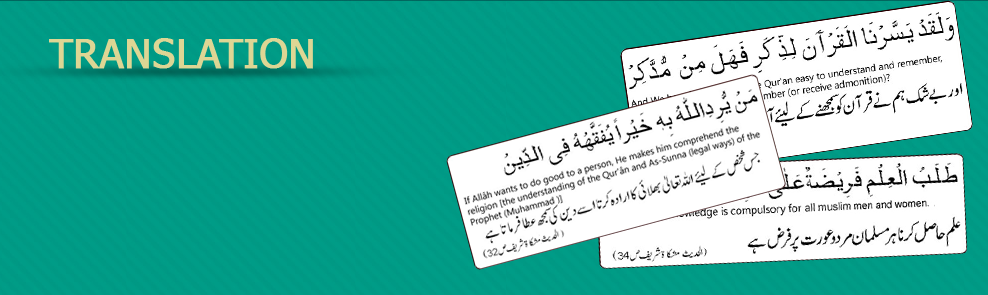 TRANSLATION
وَلَقَدْ يَسَّرْنَا الْقُرْآنَ لِذِكْرِ فَهَلْ مِنْ مُّدَّكِرْ
Qur'an easy to understand and remember,
(or receive admonition)?
اور بے شک ہم نے قرآن کو سمجھنے کے لیئے
مَنْ يُّرِدِ اللّٰهُ بِهٖ خَيْراً يُفَقِّهْهُ فِى الدِّيْنُ
If Allâh wants to do good to a person, He makes him comprehend the
religion [the understanding of the Qur'ân and As-Sunna (legal ways) of the
Prophet (Muhammad )]
جس شخص کے لیئے اللہ تعالیٰ بھلائی کا ارادہ کرتا اسے دین کی سمجھ عطا فرماتا ہے
(الحدیث مشکاۃ شریف ص 32)
طَلَبُ الْعِلْمِ فَرِيْضَةٌ
is compulsory for all muslim men and women.
علم حاصل کرنا ہر مسلمان مرد و عورت پر فرض ہے
(الحدیث مشکاۃ شریف ص 34)